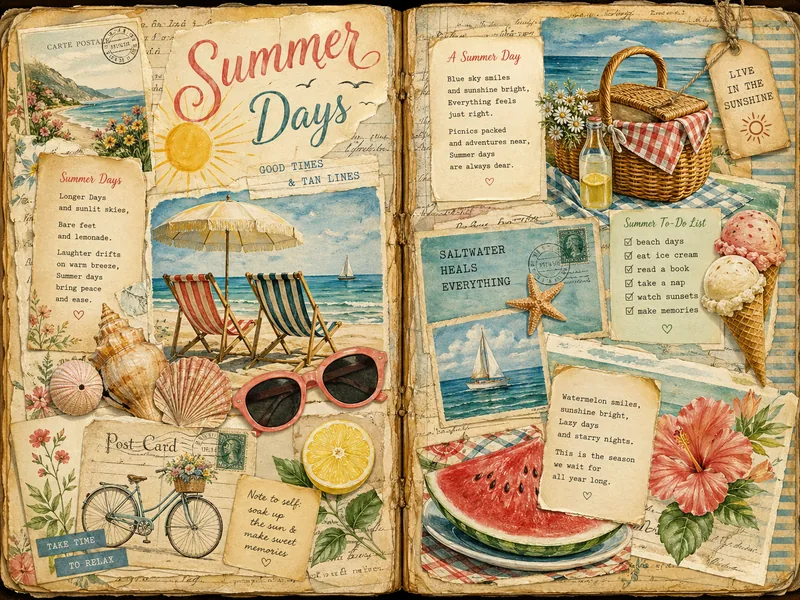 CARTE POSTALE
Summer
Days
GOOD TIMES
& TAN LINES
Summer Days
Longer Days
and sunlit skies,
Bare feet
and lemonade.
Laughter drifts
on warm breeze,
Summer days
bring peace
and ease.
Post Card
Note to self:
soak up
the sun &
make sweet
memories
TAKE TIME
TO RELAX
A Summer Day
Blue sky smiles
and sunshine bright,
Everything feels
just right.
Picnics packed
and adventures near,
Summer days
are always dear.
LIVE
IN THE
SUNSHINE
SALTWATER
HEALS
EVERYTHING
Summer To-Do List
beach days
eat ice cream
read a book
take a nap
watch sunsets
make memories
Watermelon smiles,
sunshine bright,
Lazy days
and starry nights.
This is the season
we wait for
all year long.